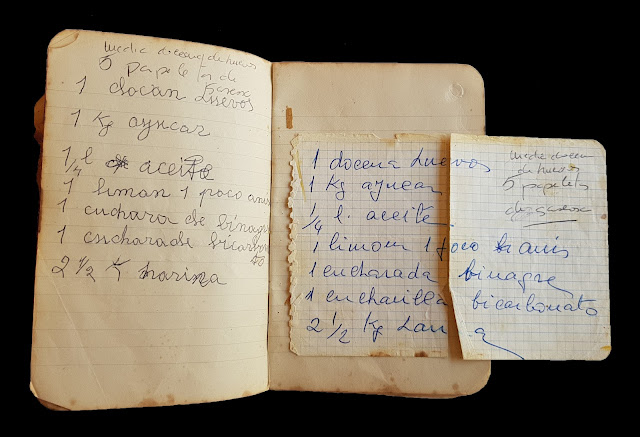 media docena de huevos
5 papeletas de
gaseosa
1 docan Luevos
1 Kg azucar
1/4 l aceite
1 liman 1 poco anis
1 cuchara de binagre
1 encharade bicarbonato
2 1/2 K harina
1 docena Luevos
1 Kg azucar
1/4 l. aceite
1 limon 1 poco anis
1 encharada binagre
1 encharilla bicarbonato
2 1/2 Kg
media docena
de huevos
5 papeletas
de gaseosa